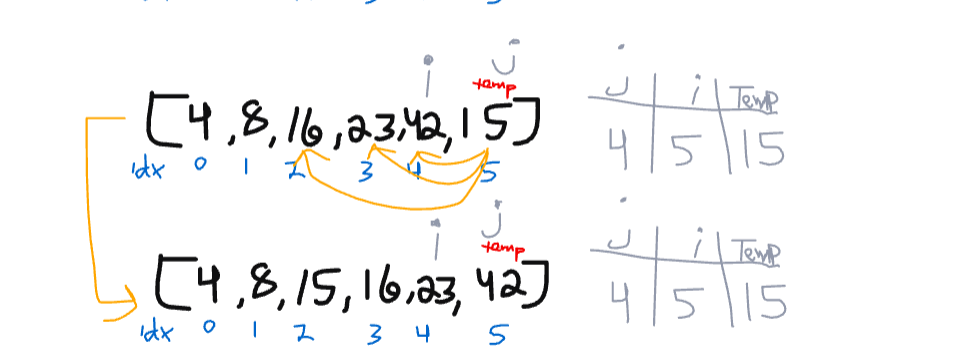 i j
temp
[4, 8, 16, 23, 42, 15]
idx 0 1 2 3 4 5
j i Temp
4 5 15
i j
temp
[4, 8, 15, 16, 23, 42]
idx 0 1 2 3 4 5
j i Temp
4 5 15